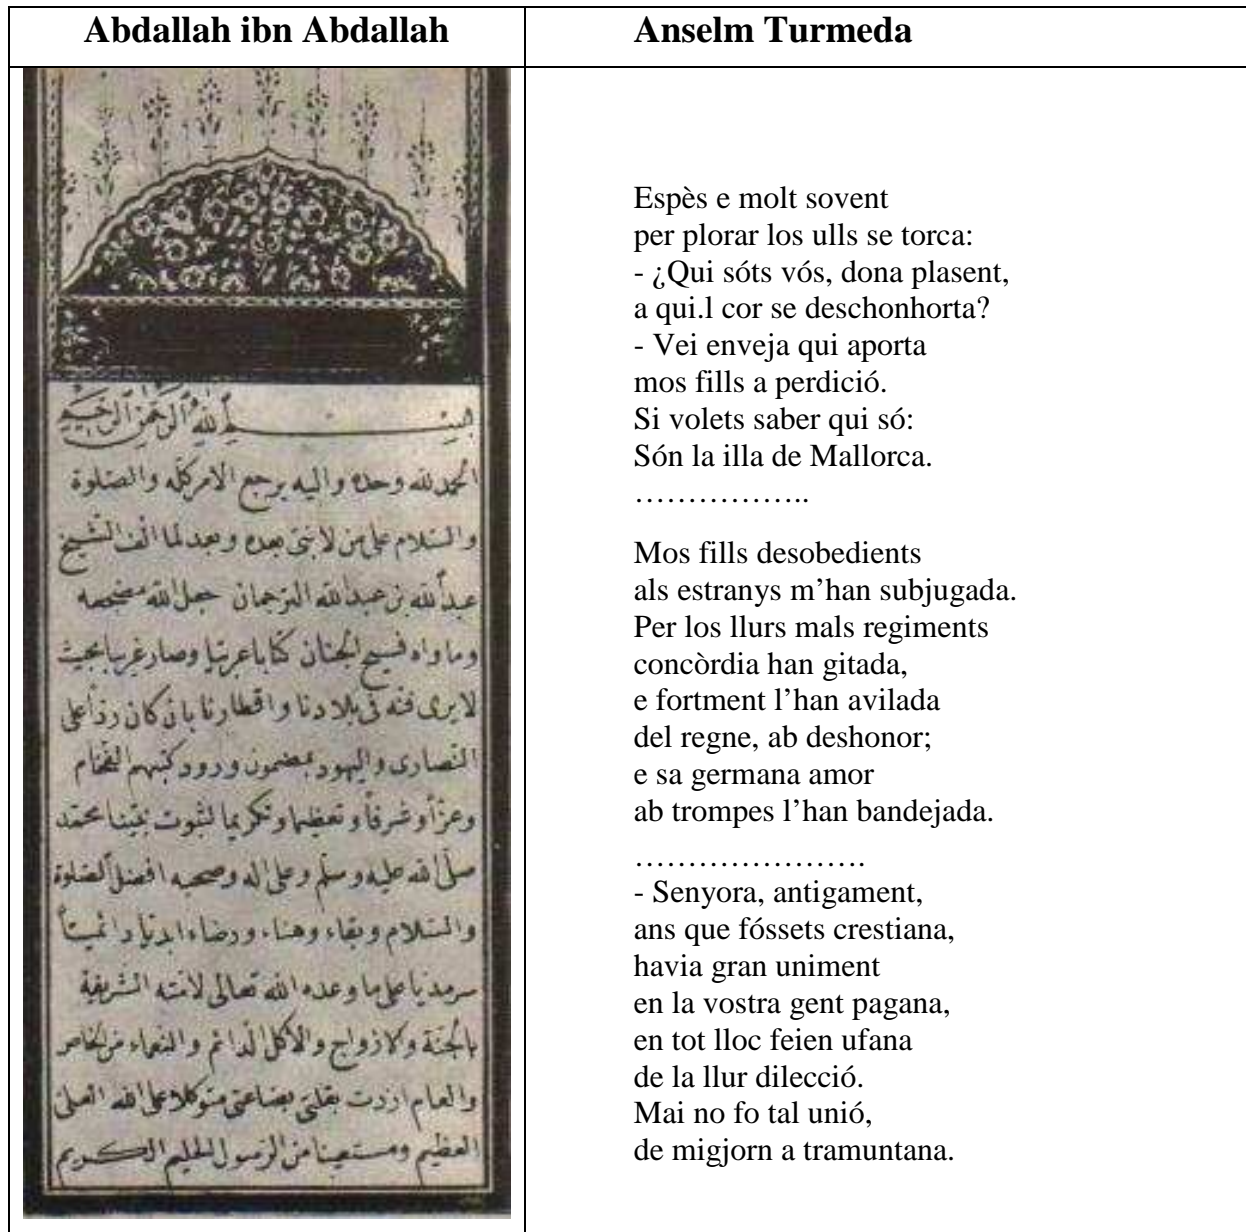 Abdallah ibn Abdallah
Anselm Turmeda
بسم الله الرحمن الرحيم
الحمد لله وحده واليه يرجع الامر كله والصلوة
والسلام على من لا نبى بعده وبعد لما الف الشيخ
عبد الله بن عبد الله الترجمان جعل الله مضجعه
وماواه فسيح الجنان كتابا عربيا وصار غريبا بحيث
لا يرى فنه فى بلادنا واقطارنا بان كان ردا على
النصارى واليهود بمضمون ورود كتبهم الفخام
وعزا وشرفا وتعظيما وتكريما لثبوت نبينا محمد
صلى الله عليه وسلم وعلى اله وصحبه افضل الصلوة
والسلام وبقاء وهناء ورضاء ابديا دائميا
سرمديا على ما وعده الله تعالى لامته الشريفة
بالجنة والازواج والاكل الدائم والنعماء من الخاص
والعام اردت بضاعتى متوكلا على الله العلى
العظيم ومستعينا من الرسول الحليم الكريم
Espès e molt sovent
per plorar los ulls se torca:
- ¿Qui sóts vós, dona plasent,
a qui.l cor se deschonhorta?
- Vei enveja qui aporta
mos fills a perdició.
Si volets saber qui só:
Són la illa de Mallorca.
……………..
Mos fills desobedients
als estranys m’han subjugada.
Per los llurs mals regiments
concòrdia han gitada,
e fortment l’han avilada
del regne, ab deshonor;
e sa germana amor
ab trompes l’han bandejada.
………………….
- Senyora, antigament,
ans que fóssets crestiana,
havia gran uniment
en la vostra gent pagana,
en tot lloc feien ufana
de la llur dilecció.
Mai no fo tal unió,
de migjorn a tramuntana.